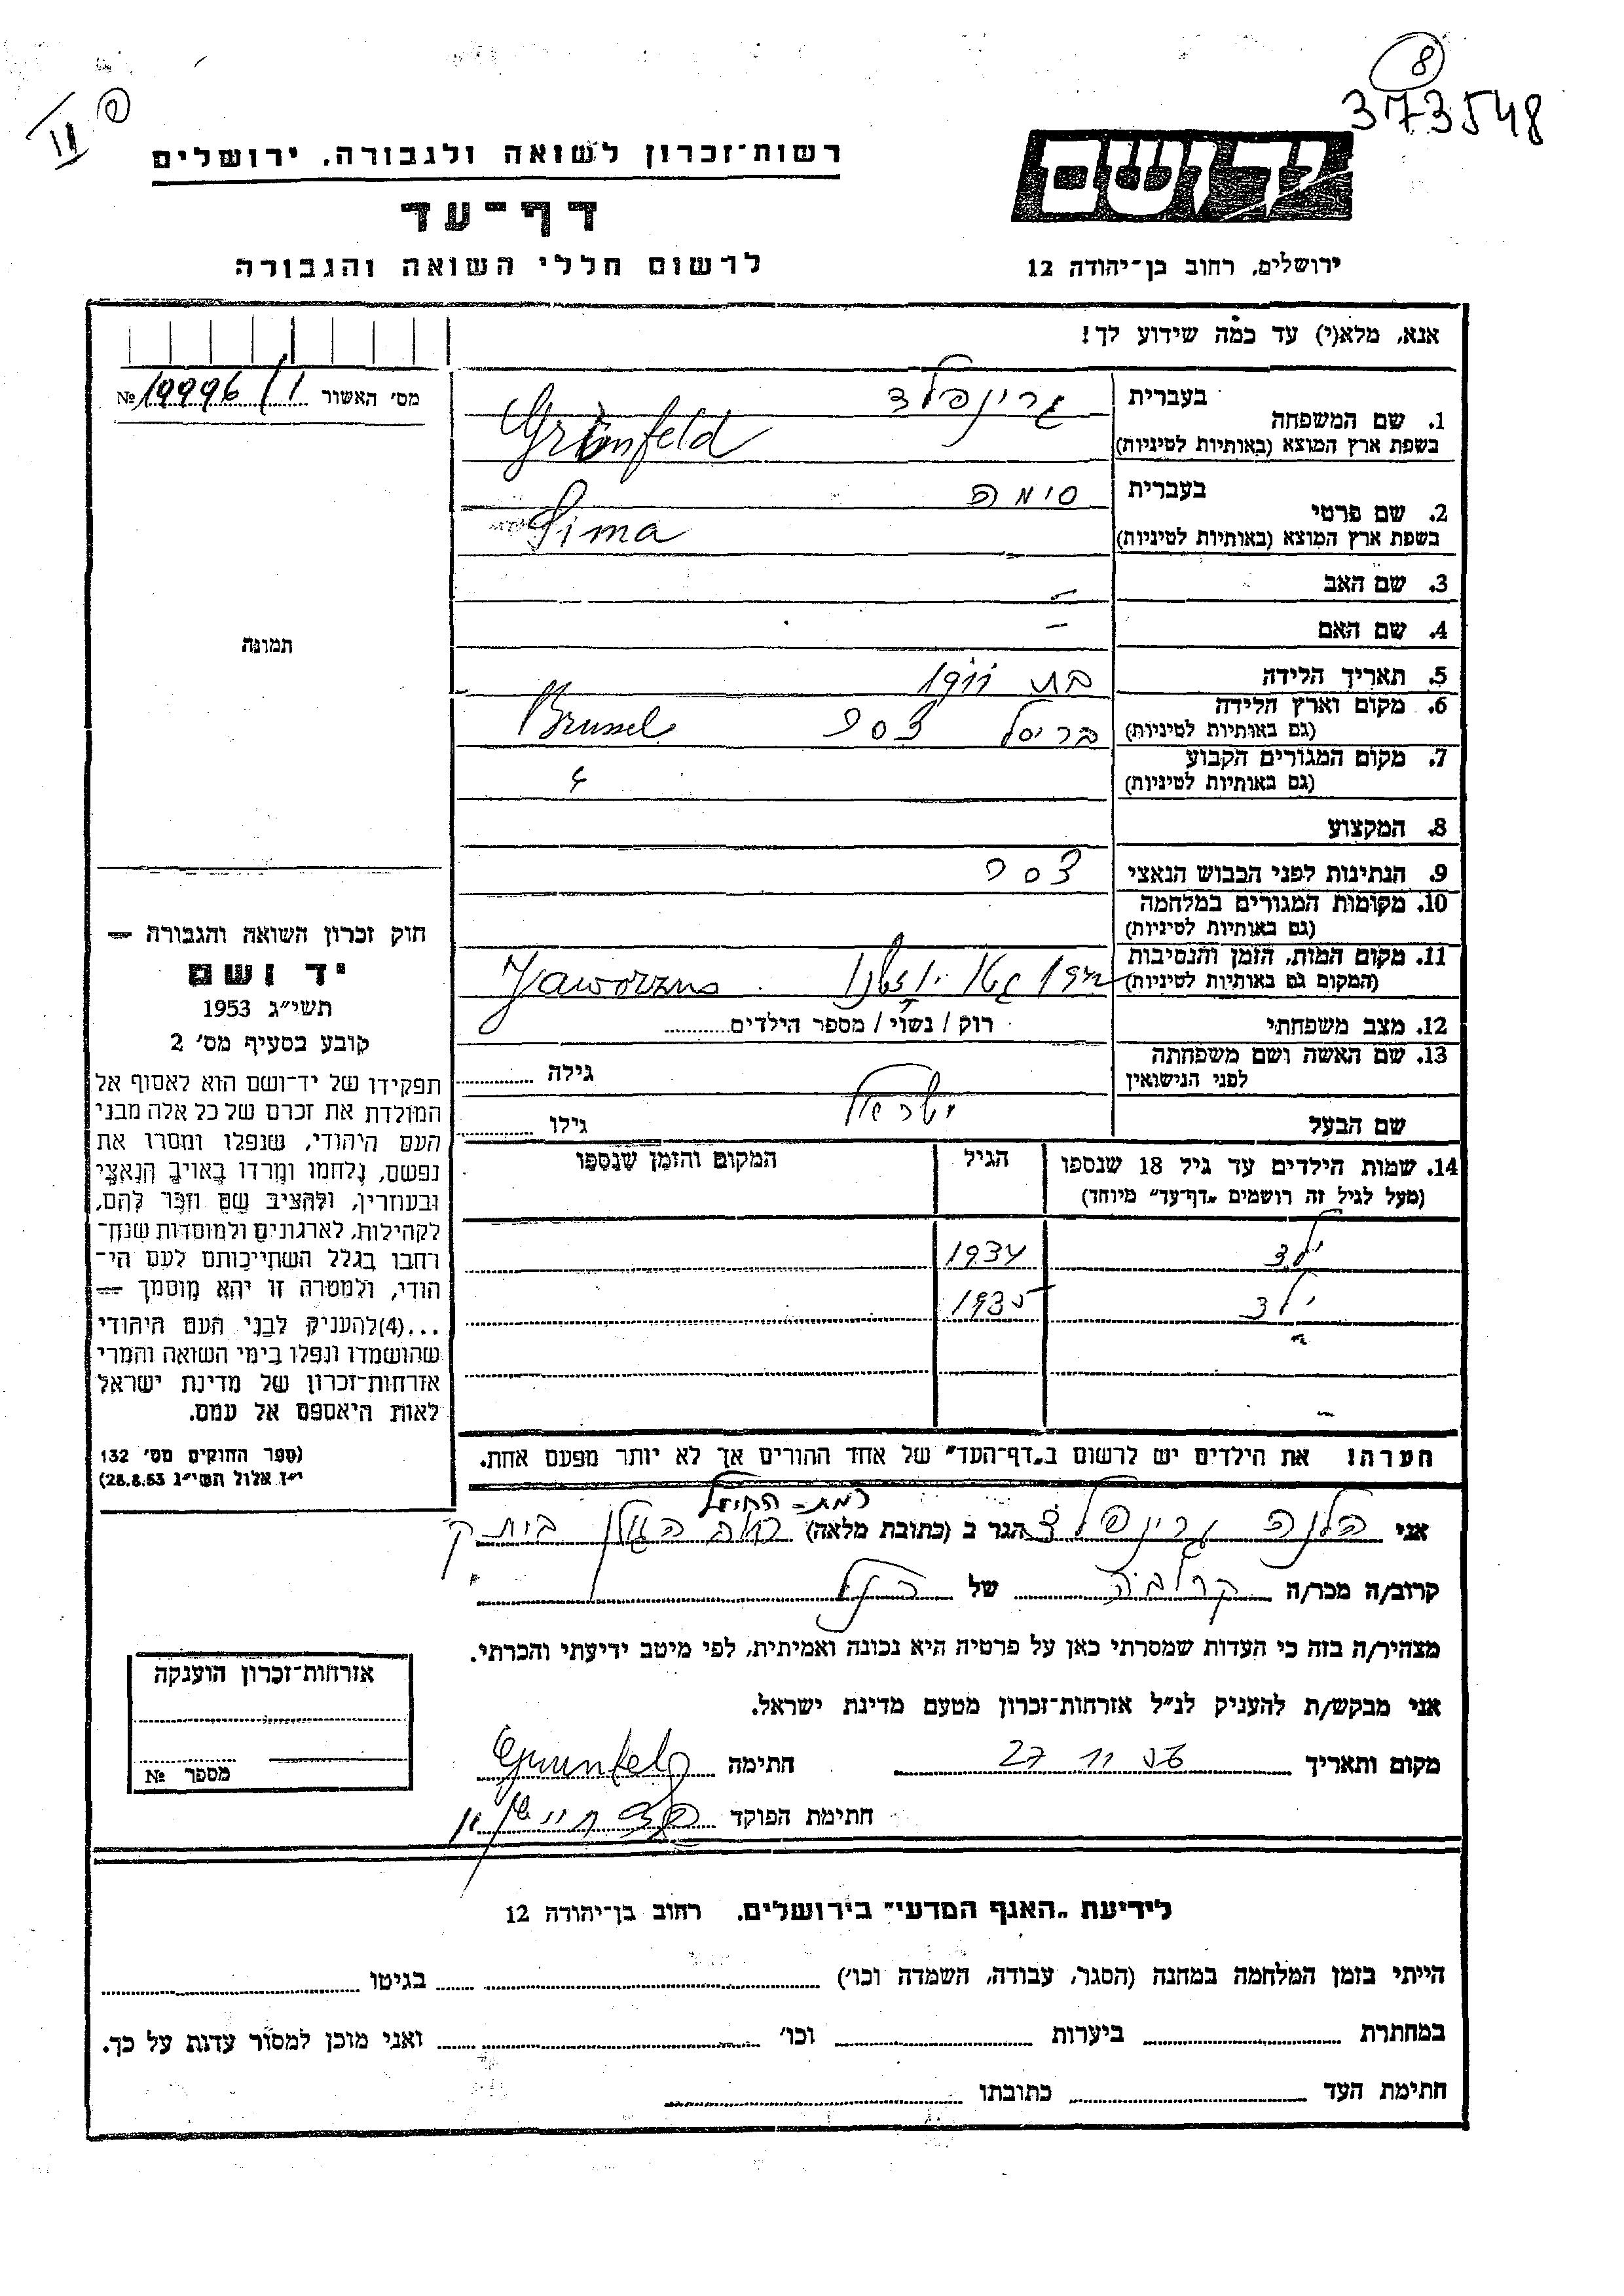 8
373548
II
רשות־זכרון לשואה ולגבורה, ירושלים
יד ושם
דף־עד
לרשום חללי השואה והגבורה
ירושלים, רחוב בן־יהודה 12
אנא, מלא(י) עד כמה שידוע לך!
מס׳ האשור 19996/1 №
בעברית גרינפלד
1. שם המשפחה
בשפת ארץ המוצא (באותיות לטיניות) Grünfeld
בעברית סימה
2. שם פרטי
בשפת ארץ המוצא (באותיות לטיניות) Sima
3. שם האב –
4. שם האם –
5. תאריך הלידה 1911
6. מקום וארץ הלידה
(גם באותיות לטיניות) בריסל Brussel
7. מקום המגורים הקבוע
(גם באותיות לטיניות)
8. המקצוע
9. הנתינות לפני הכבוש הנאצי
10. מקומות המגורים במלחמה
(גם באותיות לטיניות)
11. מקום המות, הזמן והנסיבות
(המקום גם באותיות לטיניות) Jaworzno
12. מצב משפחתי רוק / נשוי / מספר הילדים
13. שם האשה ושם משפחתה
לפני הנישואין גילה
שם הבעל ישראל גילו
14. שמות הילדים עד גיל 18 שנספו הגיל המקום והזמן שנספו
(מעל לגיל זה רושמים „דף־עד״ מיוחד)
ילד 1934
ילד 1935
הערה! את הילדים יש לרשום ב„דף־העד״ של אחד ההורים אך לא יותר מפעם אחת.
תמונה
חוק זכרון השואה והגבורה —
יד ושם
תשי״ג 1953
קובע בסעיף מס׳ 2
תפקידו של יד־ושם הוא לאסוף אל
המולדת את זכרם של כל אלה מבני
העם היהודי, שנפלו ומסרו את
נפשם, נלחמו ומרדו באויב הנאצי
ובעוזריו, ולהציב שם וזכר להם,
לקהילות, לארגונים ולמוסדות שנח־
רבו בגלל השתייכותם לעם הי־
הודי, ולמטרה זו יהא מוסמך —
...(4)להעניק לבני העם היהודי
שהושמדו ונפלו בימי השואה והמרי
אזרחות־זכרון של מדינת ישראל
לאות היאספם אל עמם.
(ספר החוקים מס׳ 132
י״ז אלול תשי״ג 28.8.53)
רמת-החייל
אני הלנה גרינפלד הגר ב (כתובת מלאה)
קרוב/ה מכר/ה קרובה של הנ״ל
מצהיר/ה בזה כי העדות שמסרתי כאן על פרטיה היא נכונה ואמיתית, לפי מיטב ידיעתי והכרתי.
אני מבקש/ת להעניק לנ״ל אזרחות־זכרון מטעם מדינת ישראל.
מקום ותאריך 27 11 56 חתימה Grunfeld
חתימת הפוקד
אזרחות־זכרון הוענקה
מספר №
לידיעת „האגף המדעי״ בירושלים. רחוב בן־יהודה 12
הייתי בזמן המלחמה במחנה (הסגר, עבודה, השמדה וכו׳) בגיטו
במחתרת ביערות וכו׳ ואני מוכן למסור עדות על כך.
חתימת העד כתובתו